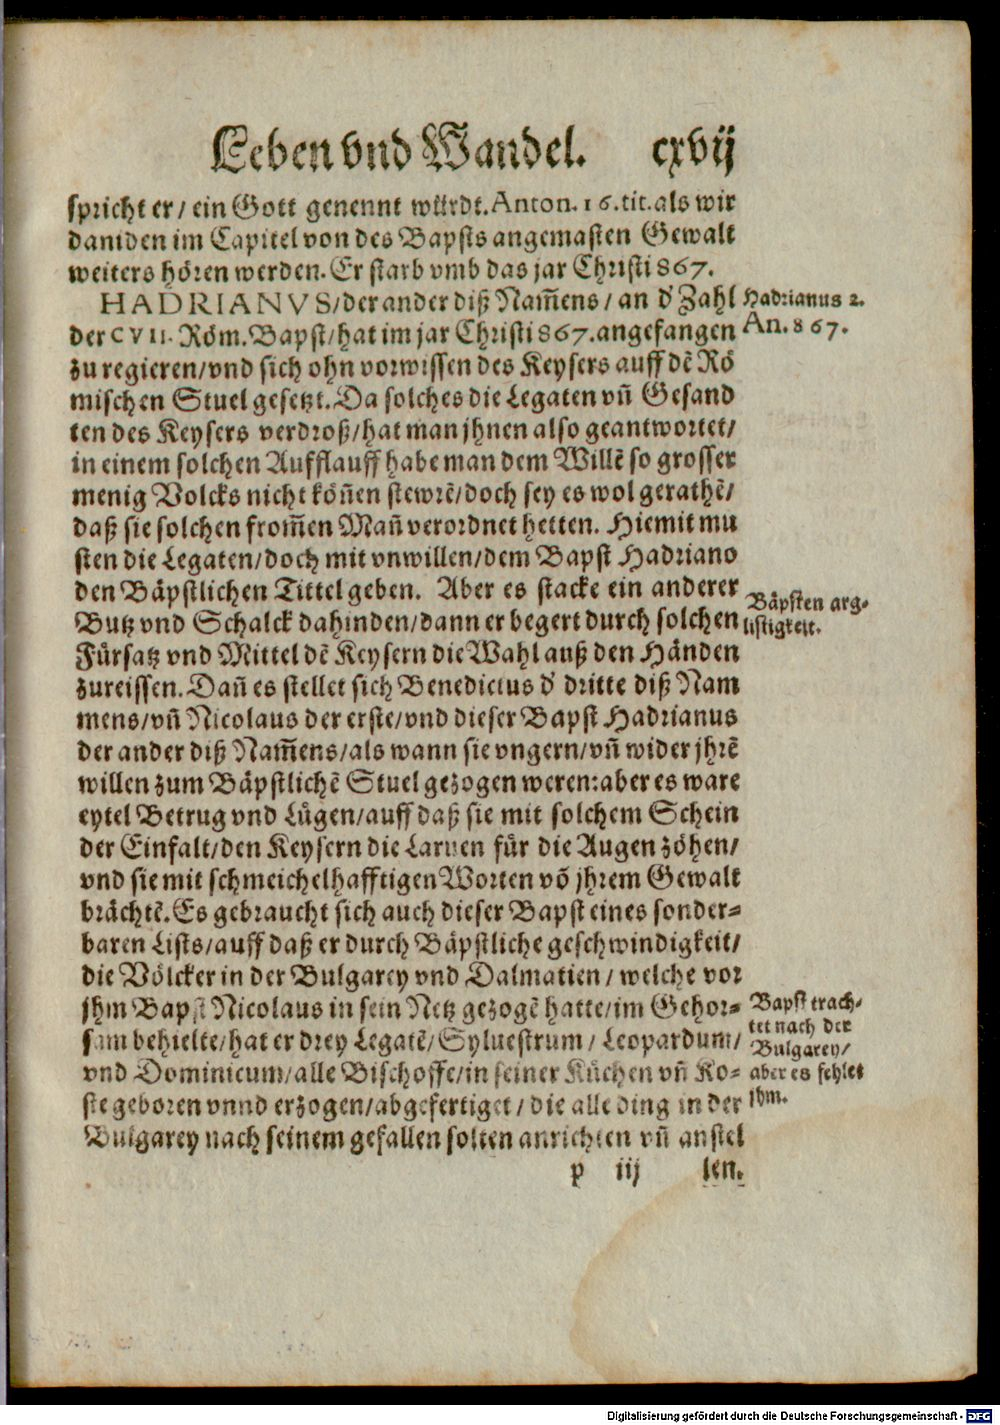 Leben vnd Wandel. cxvij
spricht er/ ein Gott genennt würdt. Anton. 16. tit. als wir
daniden im Capitel von des Bapsts angemasten Gewalt
weiters hören werden. Er starb vmb das jar Christi 867.
HADRIANVS/ der ander diß Nam̃ens/ an d' Zahl
Hadrianus 2.
der CVII. Röm. Bapst/ hat im jar Christi 867. angefangen
An. 867.
zu regieren/ vnd sich ohn vorwissen des Keysers auff dẽ Rö
mischen Stuel gesetzt. Da solches die Legaten vñ Gesand
ten des Keysers verdroß/ hat man jhnen also geantwortet/
in einem solchen Aufflauff habe man dem Willẽ so grosser
menig Volcks nicht köñen stewrẽ/ doch sey es wol gerathẽ/
daß sie solchen from̃en Mañ verordnet hetten. Hiemit mu
sten die Legaten/ doch mit vnwillen/ dem Bapst Hadriano
den Bäpstlichen Tittel geben. Aber es stacke ein anderer
Bäpsten arg-
Butz vnd Schalck dahinden/ dann er begert durch solchen
listigkeit.
Fürsatz vnd Mittel dẽ Keysern die Wahl auß den Händen
zureissen. Dañ es stellet sich Benedictus d' dritte diß Nam
mens/ vñ Nicolaus der erste/ vnd dieser Bapst Hadrianus
der ander diß Nam̃ens/ als wann sie vngern/ vñ wider jhrẽ
willen zum Bäpstlichẽ Stuel gezogen weren: aber es ware
eytel Betrug vnd Lügen/ auff daß sie mit solchem Schein
der Einfalt/ den Keysern die Laruen für die Augen zöhen/
vnd sie mit schmeichelhafftigen Worten võ jhrem Gewalt
brächtẽ. Es gebraucht sich auch dieser Bapst eines sonder-
baren Lists/ auff daß er durch Bäpstliche geschwindigkeit/
die Völcker in der Bulgarey vnd Dalmatien/ welche vor
jhm Bapst Nicolaus in sein Netz gezogẽ hatte/ im Gehor-
Bapst trach-
tet nach der
sam behielte/ hat er drey Legatẽ/ Syluestrum/ Leopardum/
Bulgarey/
vnd Dominicum/ alle Bischoffe/ in seiner Küchen vñ Ko-
aber es fehlet
ste geboren vnnd erzogen/ abgefertiget/ die alle ding in der
jhm.
Bulgarey nach seinem gefallen solten anrichten vñ anstel
p iij len.
Digitalisierung gefördert durch die Deutsche Forschungsgemeinschaft - DFG